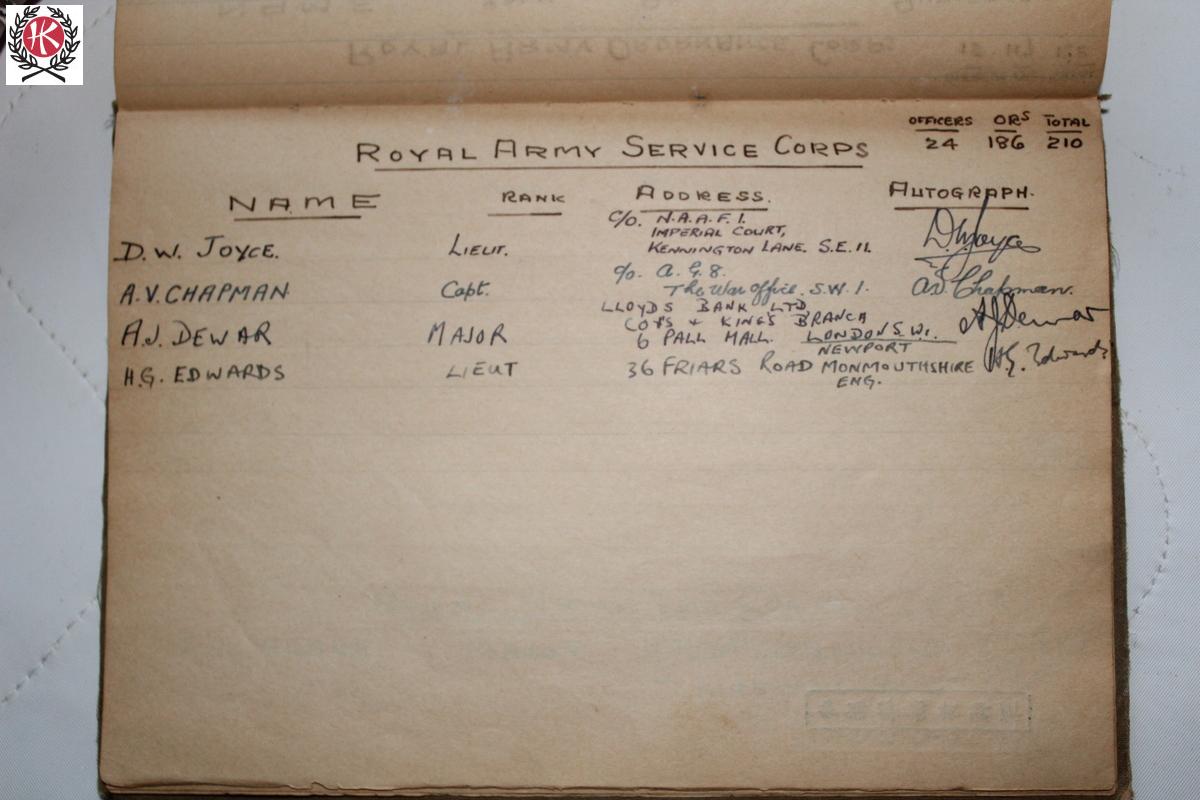 HK
OFFICERS ORS TOTAL
24 186 210
ROYAL ARMY SERVICE CORPS
NAME RANK ADDRESS. AUTOGRAPH.
D.W. JOYCE. LIEUT. C/O. N.A.A.F.I. IMPERIAL COURT, KENNINGTON LANE. S.E.11. D.W. Joyce
A.V. CHAPMAN Capt. c/o. A.G.8. The War Office. S.W.1. A.V. Chapman.
A.J. DEWAR MAJOR LLOYDS BANK LTD COX'S & KING'S BRANCH 6 PALL MALL. LONDON S.W.1. A J Dewar
H.G. EDWARDS LIEUT 36 FRIARS ROAD NEWPORT MONMOUTHSHIRE ENG. H.G. Edwards